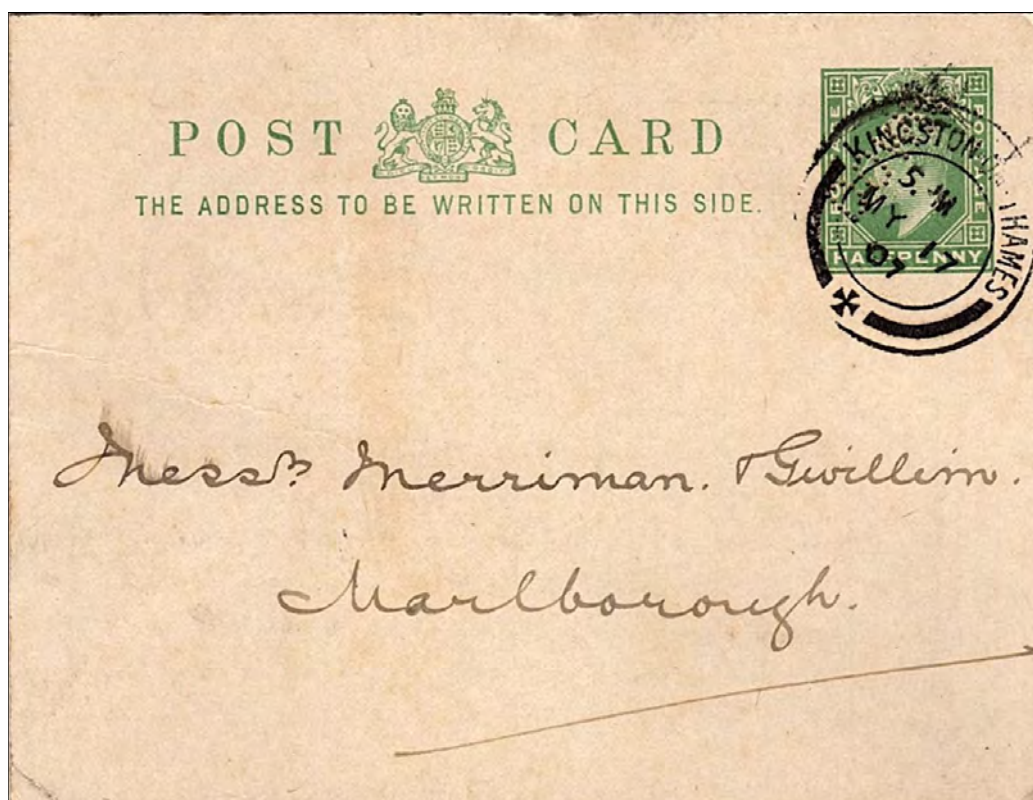 POST CARD
THE ADDRESS TO BE WRITTEN ON THIS SIDE.
HALFPENNY
KINGSTON THAMES
MY 17
Mess.rs Merriman. & Gwillim.
Marlborough.